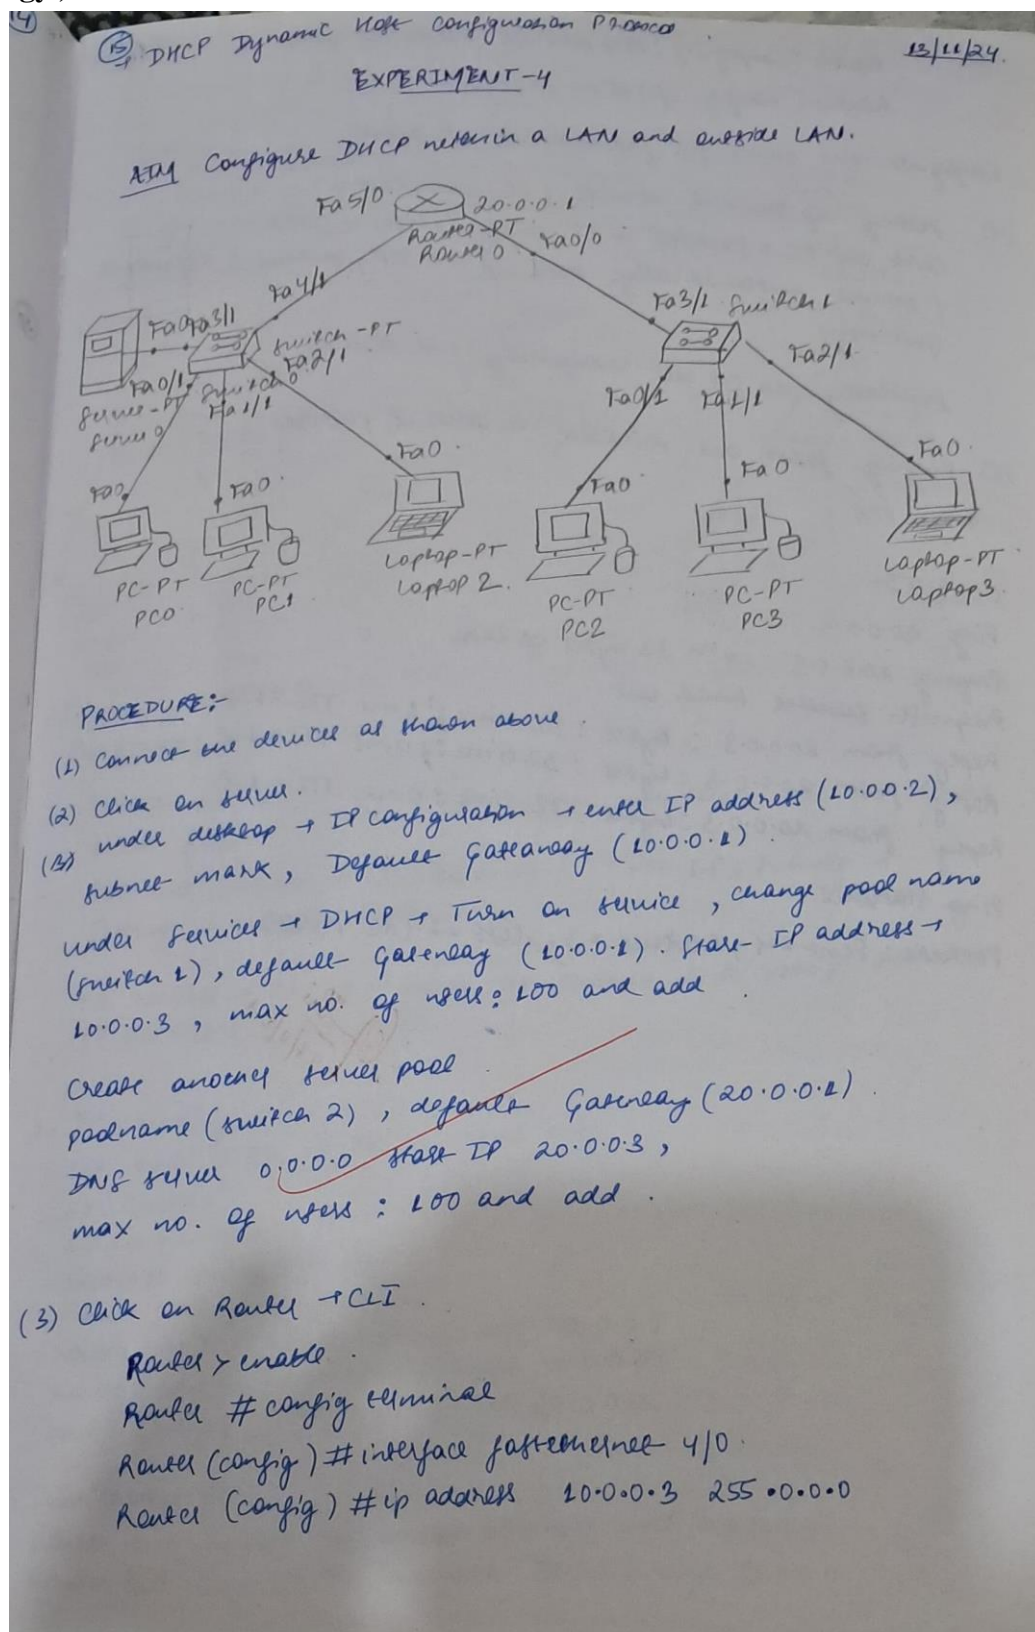 14
15
→ DHCP Dynamic Host Configuration Protocol
13/11/24.
EXPERIMENT-4
AIM Configure DHCP within a LAN and outside LAN.
Fa5/0
20.0.0.1
Router-PT
Router 0
Fa0/0
Fa4/1
Fa3/1
Switch 1
Fa0
Fa3/1
Switch-PT
Switch 0
Fa2/1
Fa2/1
Fa0/1
Server-PT
Server 0
Fa1/1
Fa0/1
Fa1/1
Fa0
Fa0
Fa0
Fa0
Fa0
Fa0
PC-PT
PC0
PC-PT
PC1
Laptop-PT
Laptop 2.
PC-PT
PC2
PC-PT
PC3
Laptop-PT
Laptop3
PROCEDURE:-
(1) Connect the devices as shown above.
(2) Click on server.
under desktop → IP configuration → enter IP address (10.0.0.2),
subnet mask, Default Gateway (10.0.0.1).
under Services → DHCP → Turn on service, change pool name
(switch 1), default Gateway (10.0.0.1). Start IP address →
10.0.0.3, max no. of users: 100 and add.
Create another server pool.
poolname (switch 2), default Gateway (20.0.0.1).
DNS server 0.0.0.0 start IP 20.0.0.3,
max no. of users : 100 and add.
(3) Click on Router → CLI.
Router > enable.
Router # config terminal
Router (config) # interface fastethernet 4/0.
Router (config) # ip address 10.0.0.3 255.0.0.0